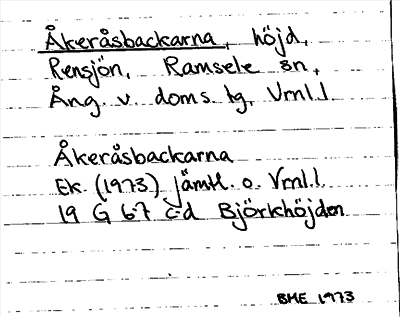 Åkeråsbackarna, höjd,
Rensjön, Ramsele sn,
Ång. v. doms. tg, Vrnl.l.
Åkeråsbackarna
Ek. (1973) Jämtl. o. Vrnl.l.
19 G 67 c-d Björkhöjden
BME 1973